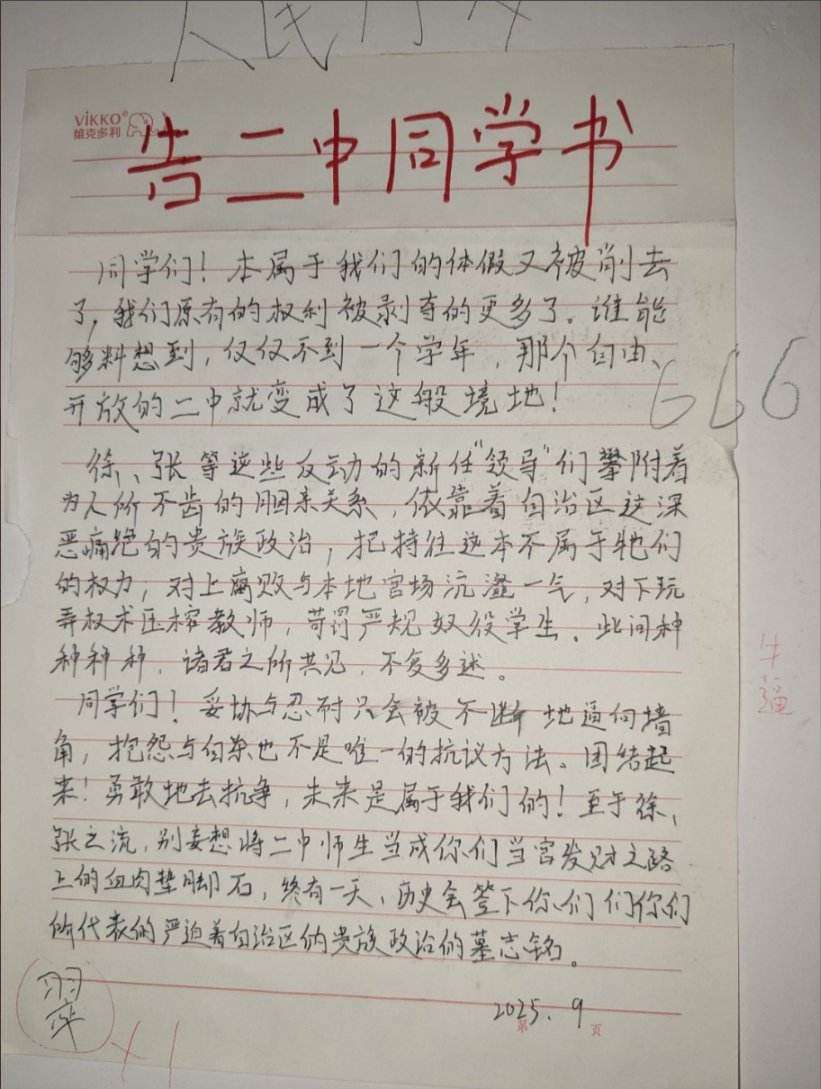 人民
VIKKO®
维克多利
告二中同学书
同学们！本属于我们的休假又被削去
了，我们原有的权利被剥夺的更多了。谁能
够料想到，仅仅不到一个学年，那个自由、
开放的二中就变成了这般境地！
666
徐、张等这些反动的新任“领导”们攀附着
为人所不齿的姻亲关系，依靠着自治区这深
恶痛绝的贵族政治，把持住这本不属于牠们
的权力，对上腐败与本地官场沆瀣一气，对下玩
弄权术压榨教师，苛罚严规奴役学生。此间种
种种种，诸君之所共见，不复多述。
牛
同学们！妥协与忍耐只会被不断地逼向墙
角，抱怨与自杀也不是唯一的抗议方法。团结起
来！勇敢地去抗争，未来是属于我们的！至于徐、
张之流，别妄想将二中师生当成你们当官发财之路
上的血肉垫脚石，终有一天，历史会签下你们们你们
所代表的严迫着自治区的贵族政治的墓志铭。
2025.9
第 页
+1